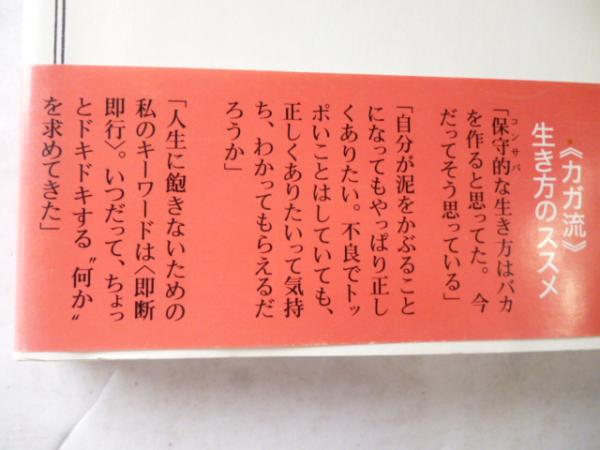 《カガ流》
生き方のススメ
「保守的な生き方はバカ
コンサバ
を作ると思ってた。今
だってそう思っている」
「自分が泥をかぶること
になってもやっぱり正し
くありたい。不良でトッ
ポいことはしていても、
正しくありたいって気持
ち、わかってもらえるだ
ろうか」
「人生に飽きないための
私のキーワードは〈即断
即行〉。いつだって、ちょっ
とドキドキする〝何か〟
を求めてきた」